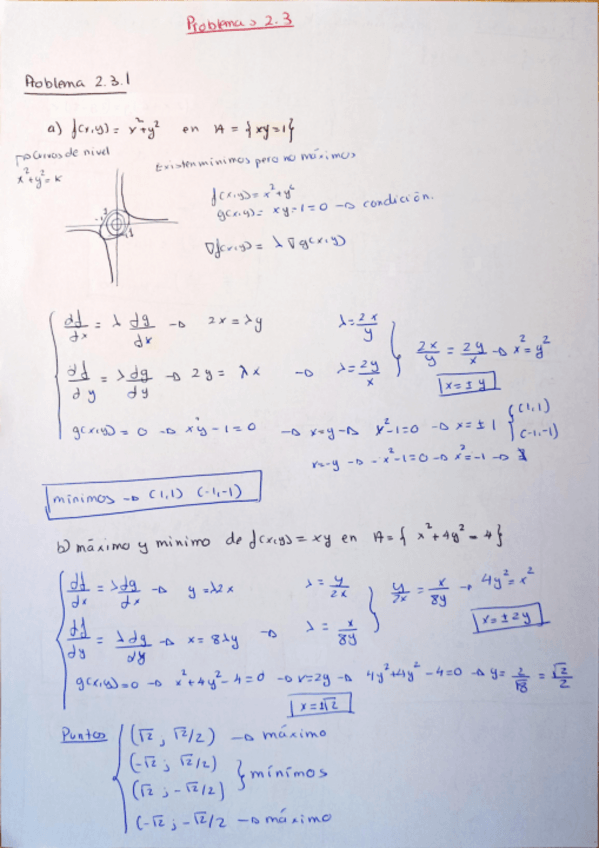 Problemas 2.3
Problema 2.3.1
a) f(x,y) = x²+y² en A = {xy=1}
curvas de nivel
x²+y²=k
Existen mínimos pero no máximos
f(x,y) = x²+y²
g(x,y) = xy-1=0 → condición.
∇f(x,y) = λ ∇g(x,y)
df/dx = λ dg/dx → 2x = λy λ = 2x/y
2x/y = 2y/x → x²=y²
df/dy = λ dg/dy → 2y = λx → λ = 2y/x
x=±y
g(x,y) = 0 → xy-1=0 → x=y → x²-1=0 → x=±1 { (1,1) (-1,-1)
x=-y → -x²-1=0 → x²=-1 → ∄
mínimos → (1,1) (-1,-1)
b) máximo y mínimo de f(x,y) = xy en A = { x²+4y²=4}
df/dx = λ dg/dx → y = λ2x λ = y/2x
y/2x = x/8y → 4y² = x²
df/dy = λ dg/dy → x = 8λy → λ = x/8y
x=±2y
g(x,y)=0 → x²+4y²-4=0 → x=2y → 4y²+4y²-4=0 → y= 2/√8 = √2/2
x=±√2
Puntos
(√2 ; √2/2) → máximo
(-√2 ; √2/2)
} mínimos
(√2 ; -√2/2)
(-√2 ; -√2/2 → máximo